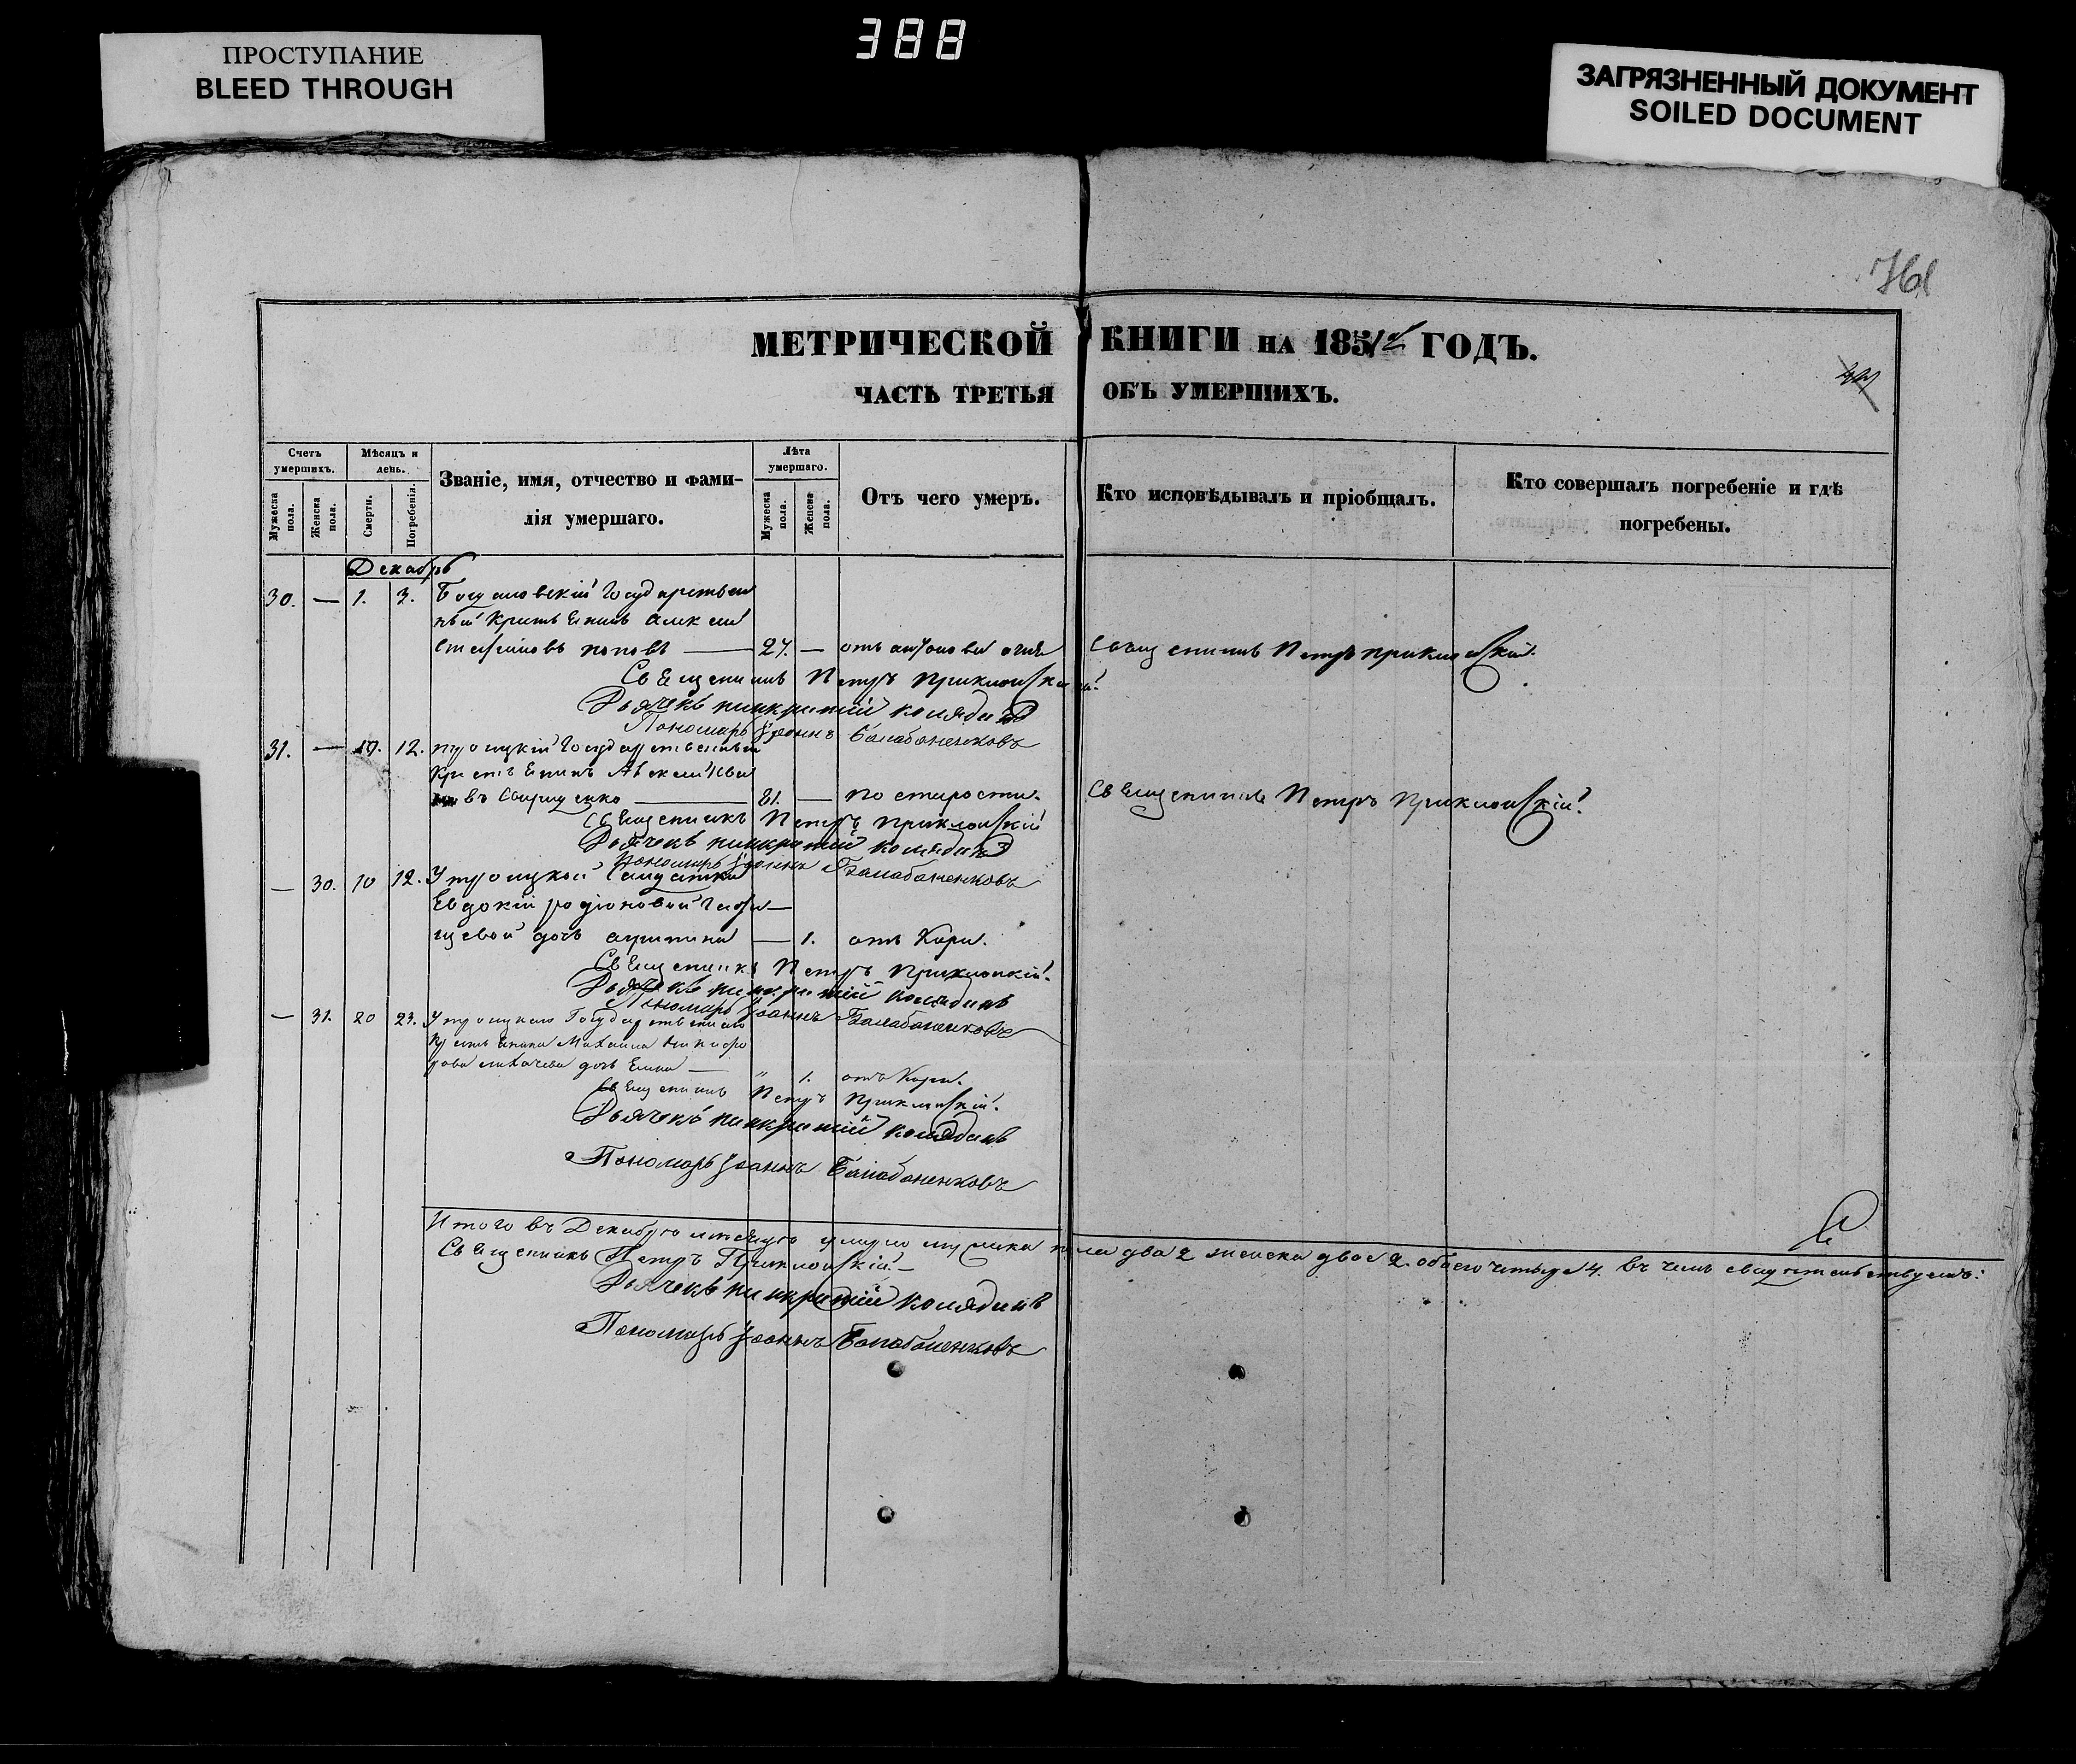 388
ПРОСТУПАНИЕ
BLEED THROUGH
ЗАГРЯЗНЕННЫЙ ДОКУМЕНТ
SOILED DOCUMENT
МЕТРИЧЕСКОЙ КНИГИ НА 185 ГОДЪ.
ЧАСТЬ ТРЕТЬЯ ОБЪ УМЕРШИХЪ.
Счетъ умершихъ.
Мужеска пола.
Женска пола.
Мѣсяцъ и день.
Смерти.
Погребенія.
Званіе, имя, отчество и фами-
лія умершаго.
Лѣта умершаго.
Мужеска пола.
Женска пола.
Отъ чего умеръ.
Кто исповѣдывалъ и пріобщалъ.
Кто совершалъ погребеніе и гдѣ
погребены.
Декабрь
30. — 1. 3. Государствен
ный Крестьянинъ Алексей
Стефановъ поповъ — 27. — отъ антонова огня Священникъ Петръ
Священникъ Петръ
Дьячекъ панкратій колядинъ
Пономарь Іоаннъ Балабаненковъ
31. — 12. троицкій Государственный
Крестьянинъ
въ — 81. — по старости. Священникъ Петръ
Священникъ Петръ
Дьячекъ панкратій колядинъ
Пономарь Іоаннъ Балабаненковъ
— 30. 10 12. У троицкой
Евдокіи родіоновой
дочь — 1. отъ Кори.
Священникъ Петръ
Дьячекъ панкратій колядинъ
Пономарь Іоаннъ Балабаненковъ
— 31. 20 23. У троицкаго Государственнаго
Крестьянина Михаила Никифо
рова дочь — " 1. отъ Кори.
Священникъ Петръ
Дьячекъ панкратій колядинъ
Пономарь Іоаннъ Балабаненковъ
Итого въ Декабрѣ мѣсяцѣ умерло мужеска пола два 2 женска двое 2. обоего четыре 4. въ чемъ свидетельствуемъ:
Священникъ Петръ
Дьячекъ панкратій колядинъ
Пономарь Іоаннъ Балабаненковъ